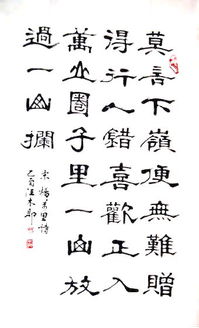 莫言下嶺便無難賺
得行人錯喜歡正入
萬山圈子里一山放
過一山攔
宋楊萬里詩